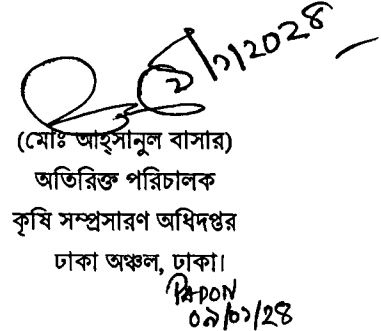 ২/১/২০২৪
(মোঃ আহ্সানুল বাসার)
অতিরিক্ত পরিচালক
কৃষি সম্প্রসারণ অধিদপ্তর
ঢাকা অঞ্চল, ঢাকা।
PADON
০৯/০১/২৪